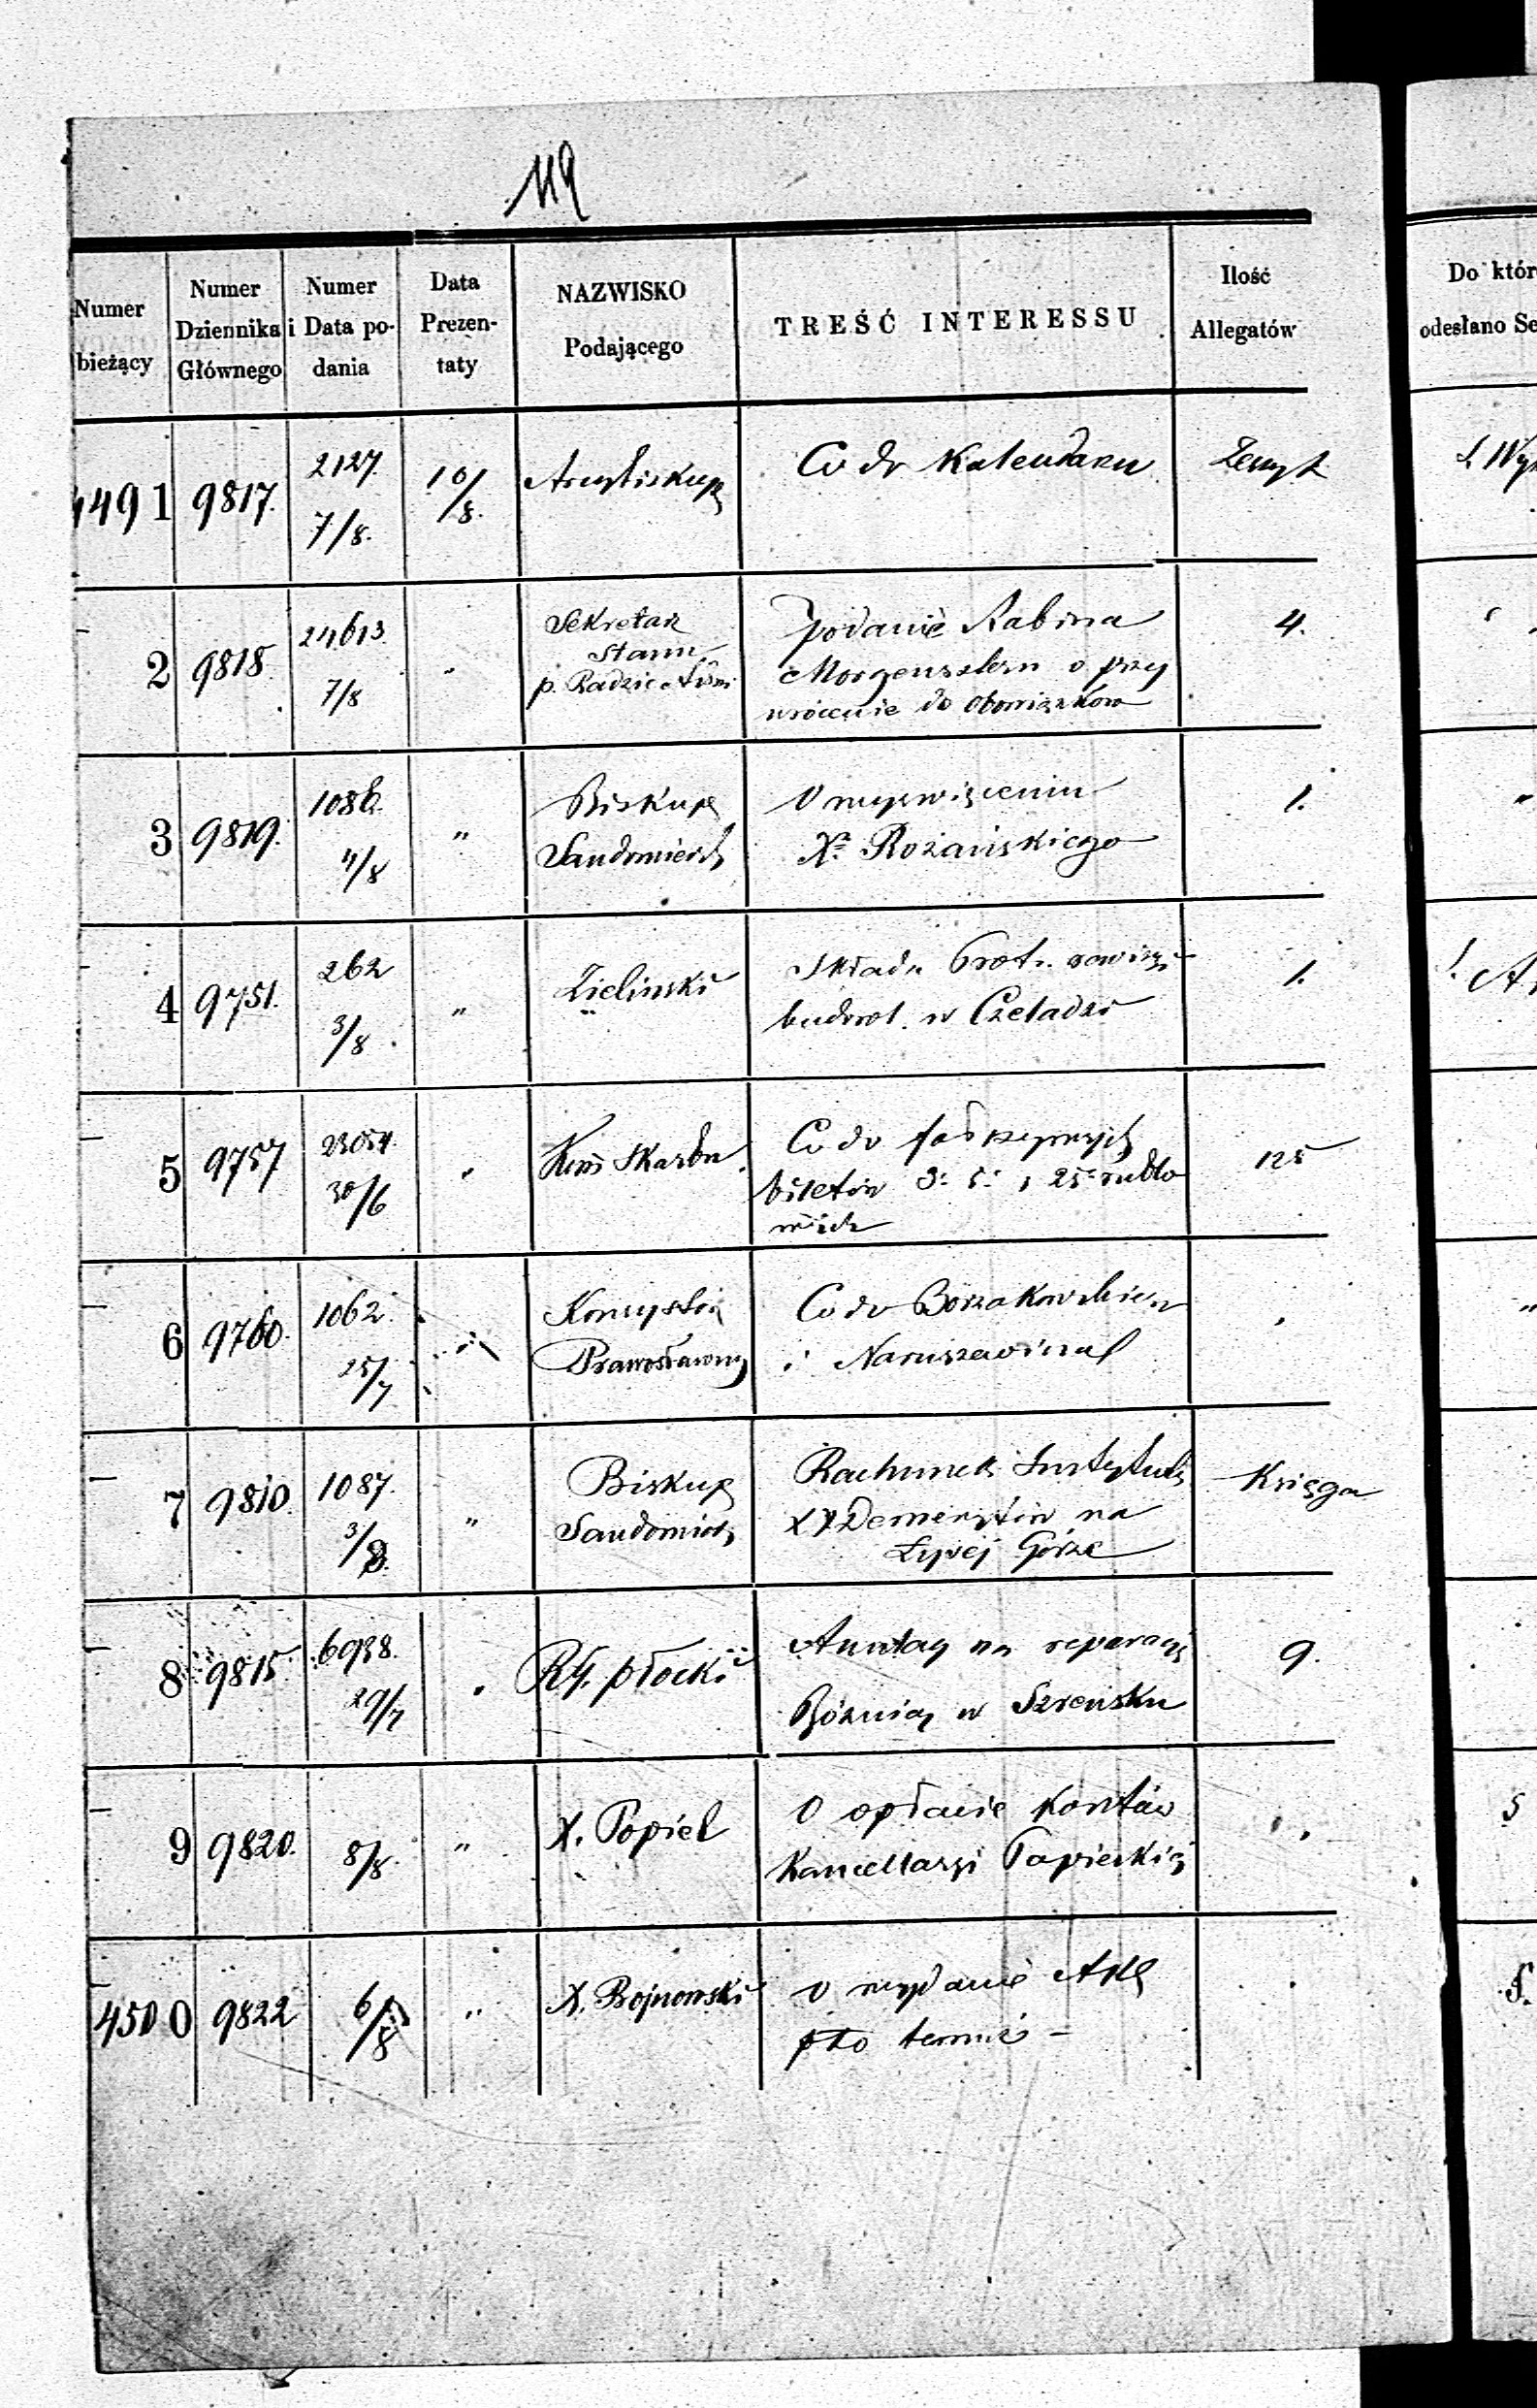 119
Numer bieżący
Numer Dziennika Głównego
Numer i Data podania
Data Prezentaty
NAZWISKO Podającego
TREŚĆ INTERESSU
Ilość Allegatów
Do któr
odesłano Se
4491 9817. 2127 7/8. 10/8. Arcybiskup Co do Kalendarza Zeszyt
2 9818. 24613. 7/8 " Sekretarz
Stanu
p. Radzie
podanie Rabina
Morgensztern o przy
wrócenie do obowiązków
4.
3 9819. 1086. 4/8 " Biskup
Sandomiersk
O wyświęceniu
Xa Rożańskiego
1.
4 9751. 262 3/8. " Zieliński
Składa Prot.
budowl. w Czeladzi
1.
5 9757 23054. 30/6 " Kom Skarbu
Co do fałszywych
biletów 3. 5. i 25 rublo
wych
125
6 9760. 1062. 25/7 " Konsystorz
Prawosławny
Co do
i Naruszewicza
7 9810. 1087. 3/8. " Biskup
Sandomiersk
Rachunek Instytutu
XX Demerytów na
Łysej Górze
Księga
8 9815. 6938. 29/7 " RG. płocki
Anszlag na reperacyę
Bóżnicy w Szreńsku
9.
9 9820. 8/8. " X. Popiel
O opłacie kosztów
Kancellaryi Papieskiej
4500 9822 6/8 " X. Bojnowski
O wydanie Akt